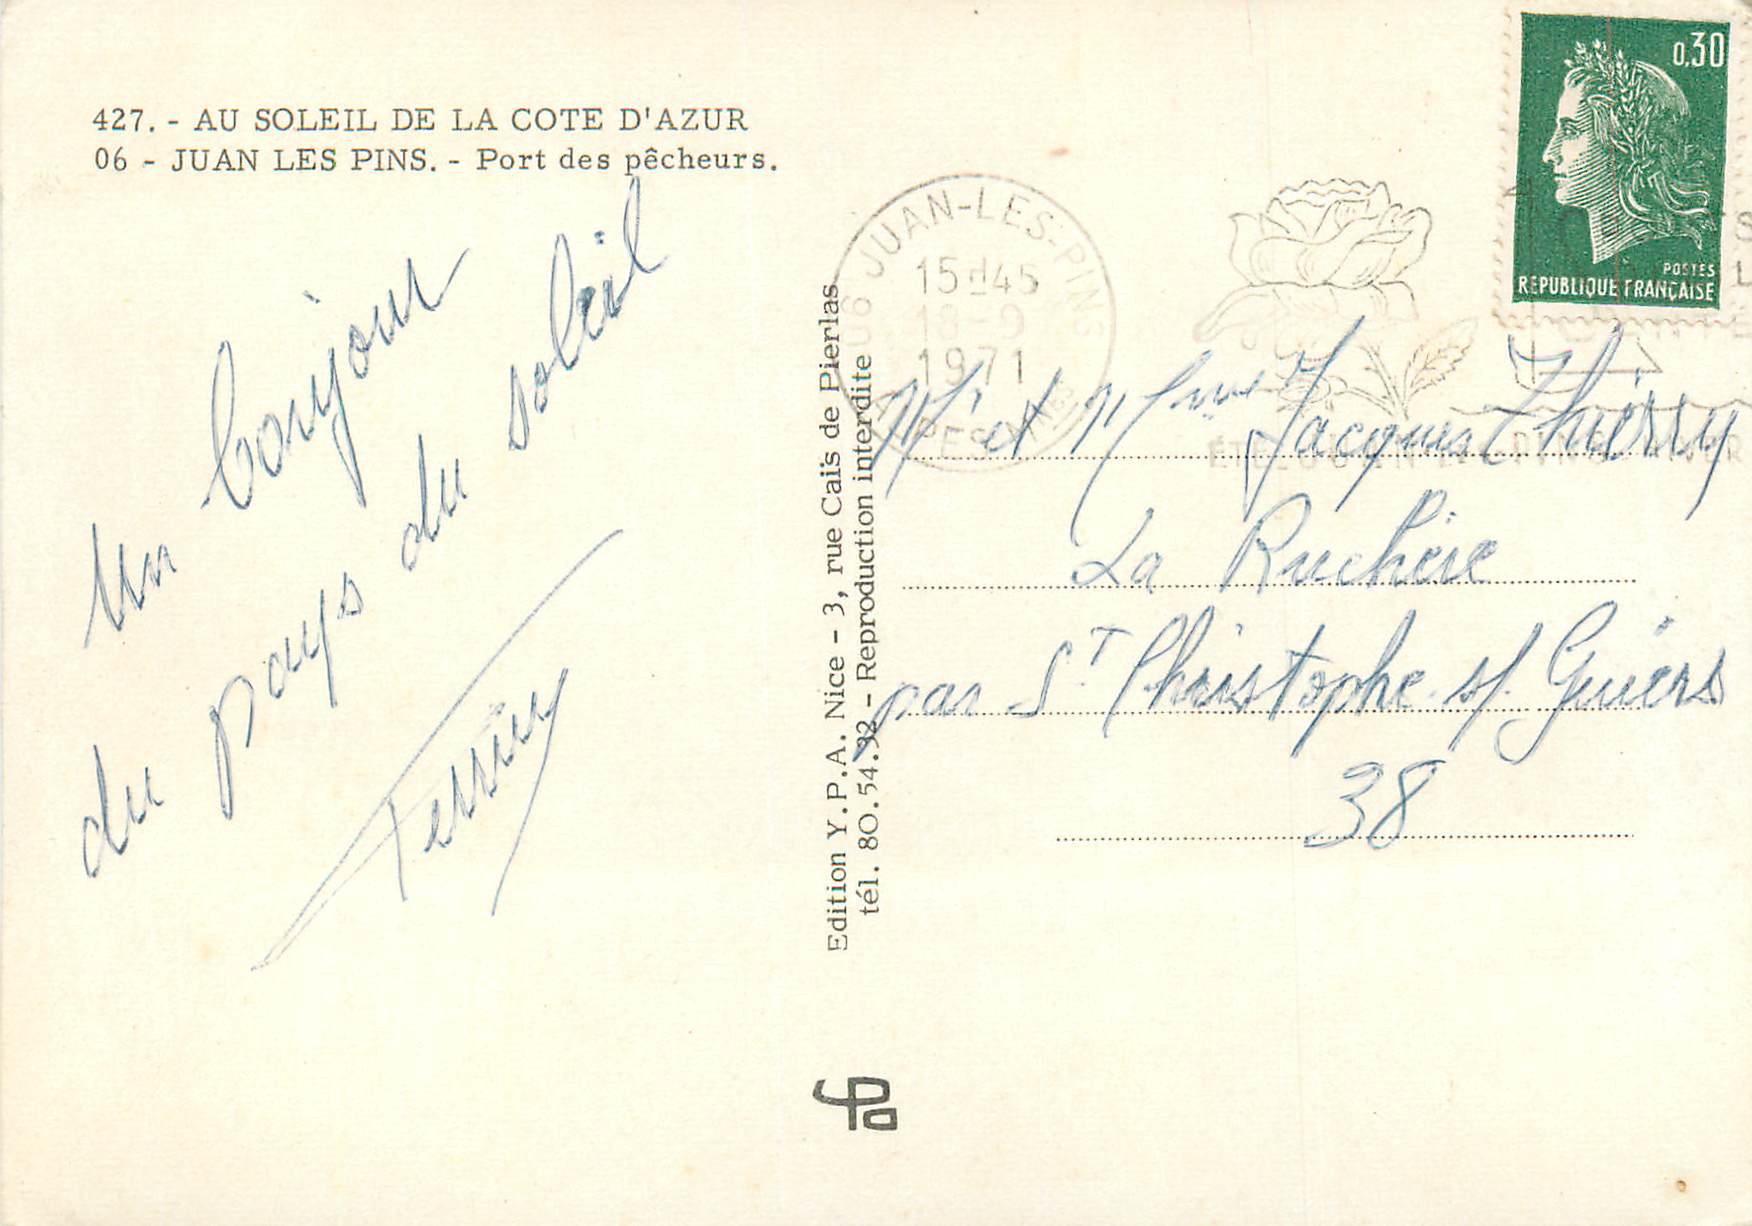 427. - AU SOLEIL DE LA COTE D'AZUR
06 - JUAN LES PINS. - Port des pêcheurs.
Un bonjour
du pays du soleil
Edition Y.P.A. Nice - 3, rue Caïs de Pierlas
tél. 80.54.92 - Reproduction interdite
06 JUAN-LES-PINS
15H45
18-9
1971
ALPES-MMES
0,30
POSTES
REPUBLIQUE FRANÇAISE
ÉTÉ JUAN-LES-PINS HIVER
Mr et Mme Jacques Thierry
La Ruchère
par St Christophe s/ Guiers
38
YPA